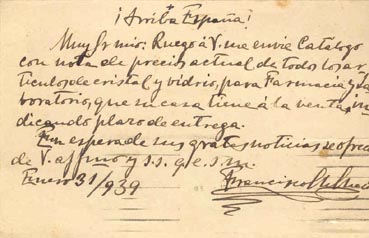 ¡Arriba España!
Muy Sr mio: Ruego á V. me envie Catálogo
con nota de precios actual de todos los ar
tículos de cristal y vidrio, para Farmacia y La
boratorio, que su casa tiene á la venta, in
dicando plazo de entrega.
En espera de sus gratas noticias se ofrece
de V. affmo y s.s. q.e.s.m.
Enero 31/939 Francisco